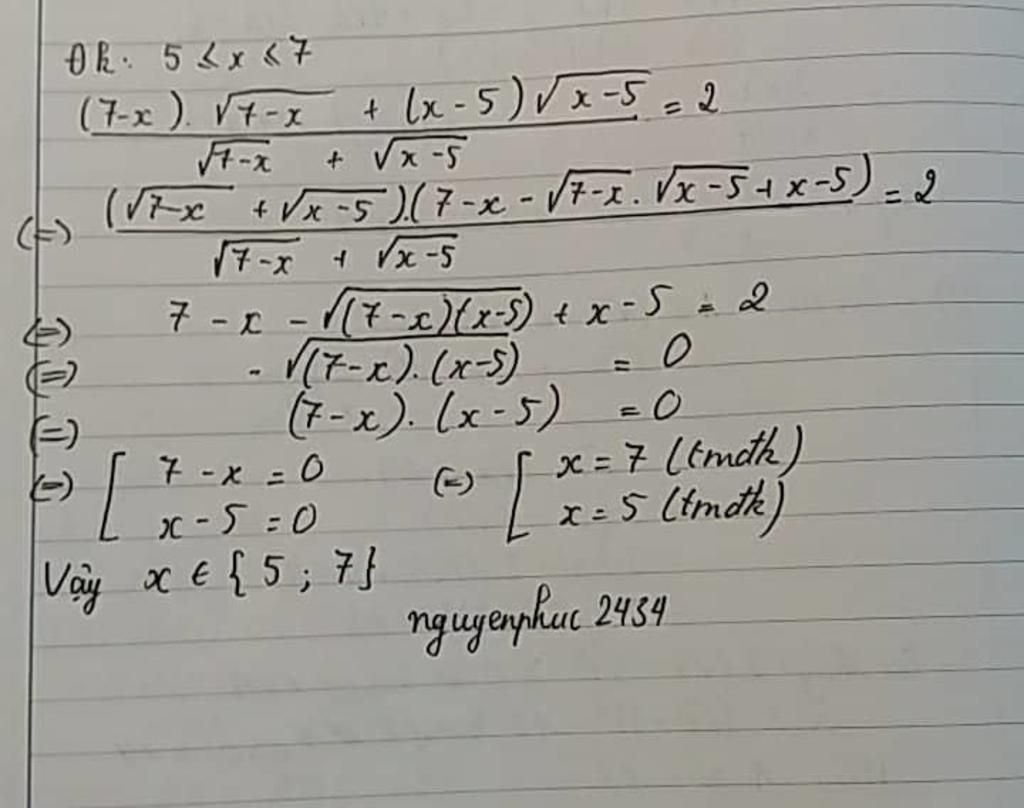 Đk: 5 ≤ x ≤ 7
((7-x).√(7-x) + (x-5)√(x-5)) / (√(7-x) + √(x-5)) = 2
(=) ((√(7-x) + √(x-5)).(7-x - √(7-x).√(x-5) + x-5)) / (√(7-x) + √(x-5)) = 2
(=) 7 - x - √((7-x)(x-5)) + x - 5 = 2
(=) - √((7-x).(x-5)) = 0
(=) (7-x).(x-5) = 0
(=) [ 7 - x = 0 (=) [ x = 7 (tmdk)
x - 5 = 0 x = 5 (tmdk)
Vậy x ∈ {5 ; 7}
nguyenphuc 2434